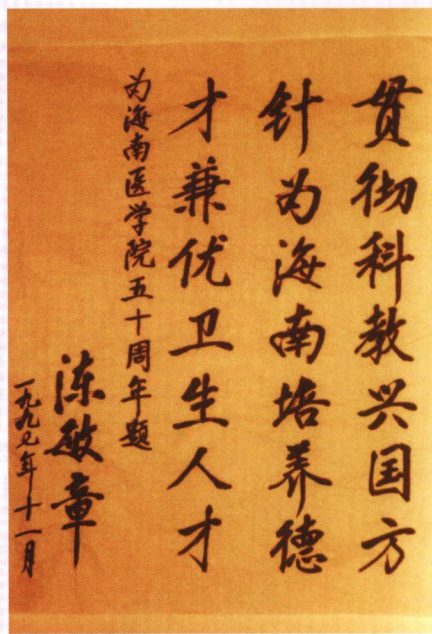 贯彻科教兴国方
针为海南培养德
才兼优卫生人才
为海南医学院五十周年题
陈敏章
一九九七年十一月